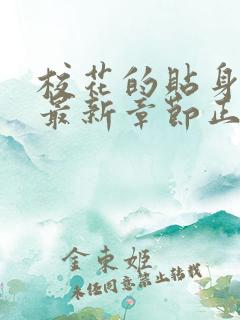 校花的贴身
最新章节正
金束姬
未经同意禁止转载